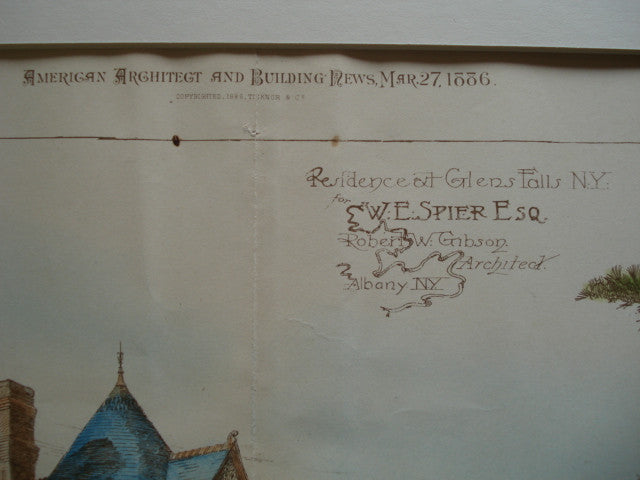 American Architect and Building News, Mar. 27, 1886.
COPYRIGHTED, 1886, TICKNOR & Co
Residence at Glens Falls N.Y.
for
W. E. Spier Esq.
Robert W. Gibson
Architect.
Albany N.Y.